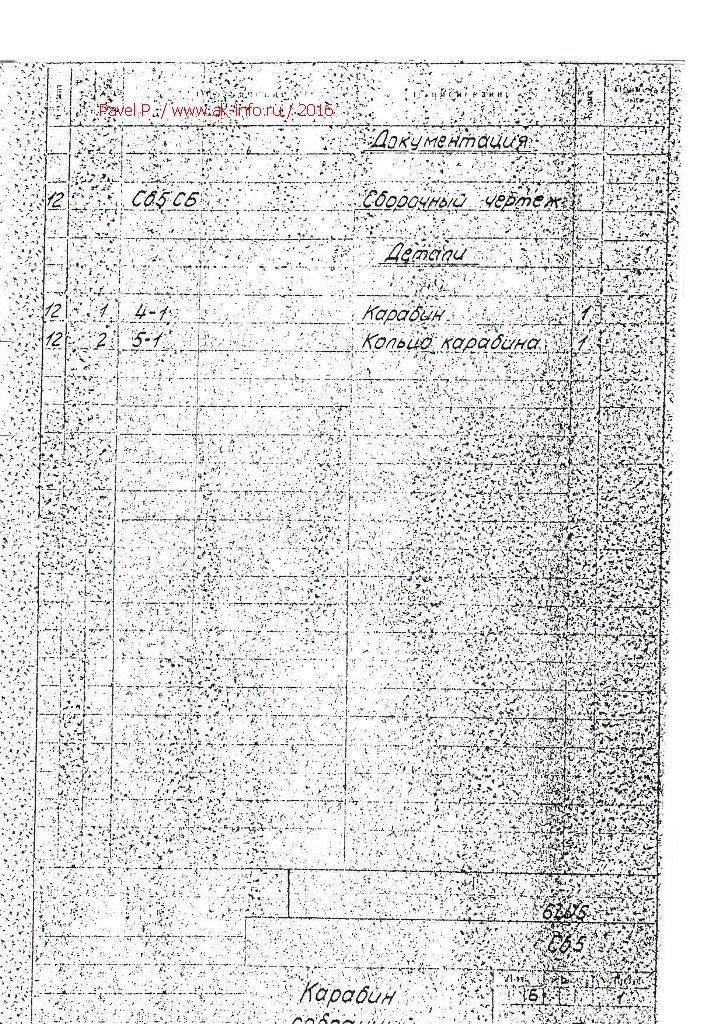 Наименование
Pavel P. / www.ak-info.ru / 2016
Документация
12 Сб5 СБ Сборочный чертеж
Детали
12 1 4-1 Карабин 1
12 2 5-1 Кольцо карабина 1
Сб5
Карабин
Б 1